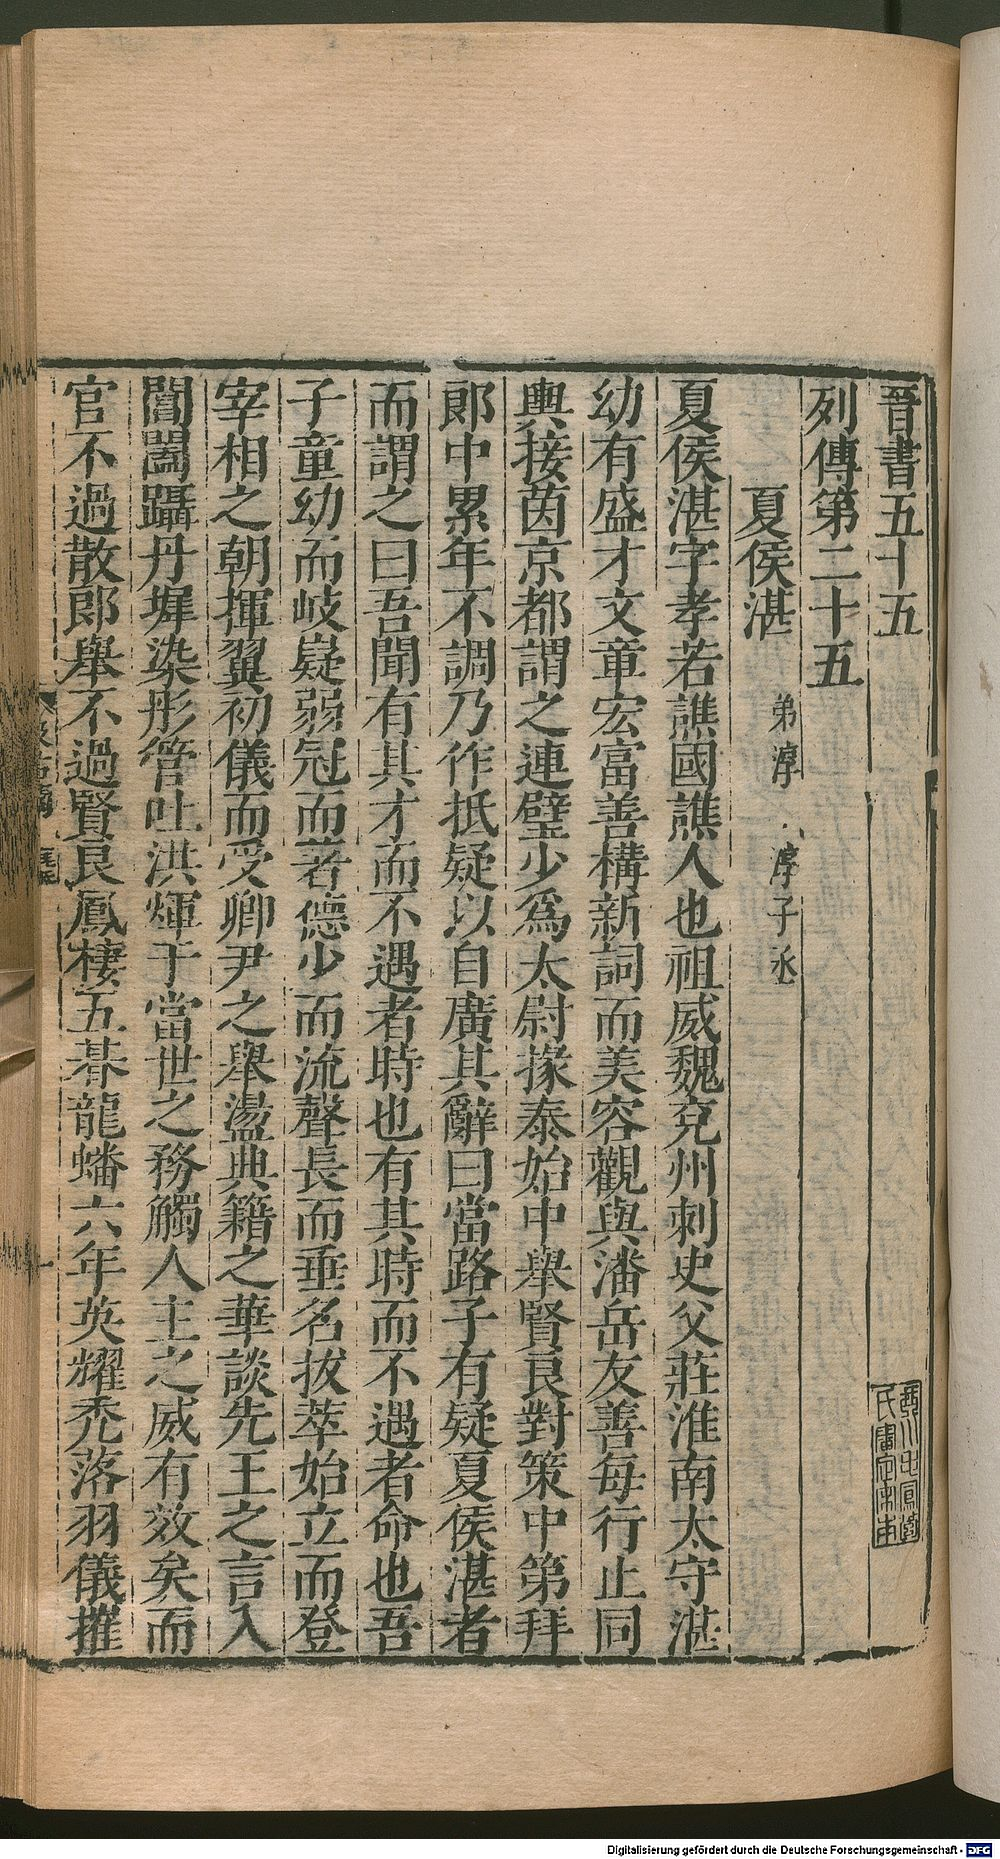 晉書五十五
列傳第二十五
夏侯湛 弟淳 淳子承
夏侯湛字孝若譙國譙人也祖威魏兗州刺史父莊淮南太守湛
幼有盛才文章宏富善構新詞而美容觀與潘岳友善每行止同
輿接茵京都謂之連璧少爲太尉掾泰始中舉賢良對策中第拜
郎中累年不調乃作抵疑以自廣其辭曰當路子有疑夏侯湛者
而謂之曰吾聞有其才而不遇者時也有其時而不遇者命也吾
子童幼而岐嶷弱冠而著德少而流聲長而垂名拔萃始立而登
宰相之朝揮翼初儀而受卿尹之舉盪典籍之華談先王之言入
閶闔躡丹墀染彤管吐洪煇干當世之務觸人主之威有效矣而
官不過散郎舉不過賢良鳳棲五朞龍蟠六年英耀禿落羽儀摧
Digitalisierung gefördert durch die Deutsche Forschungsgemeinschaft - DFG